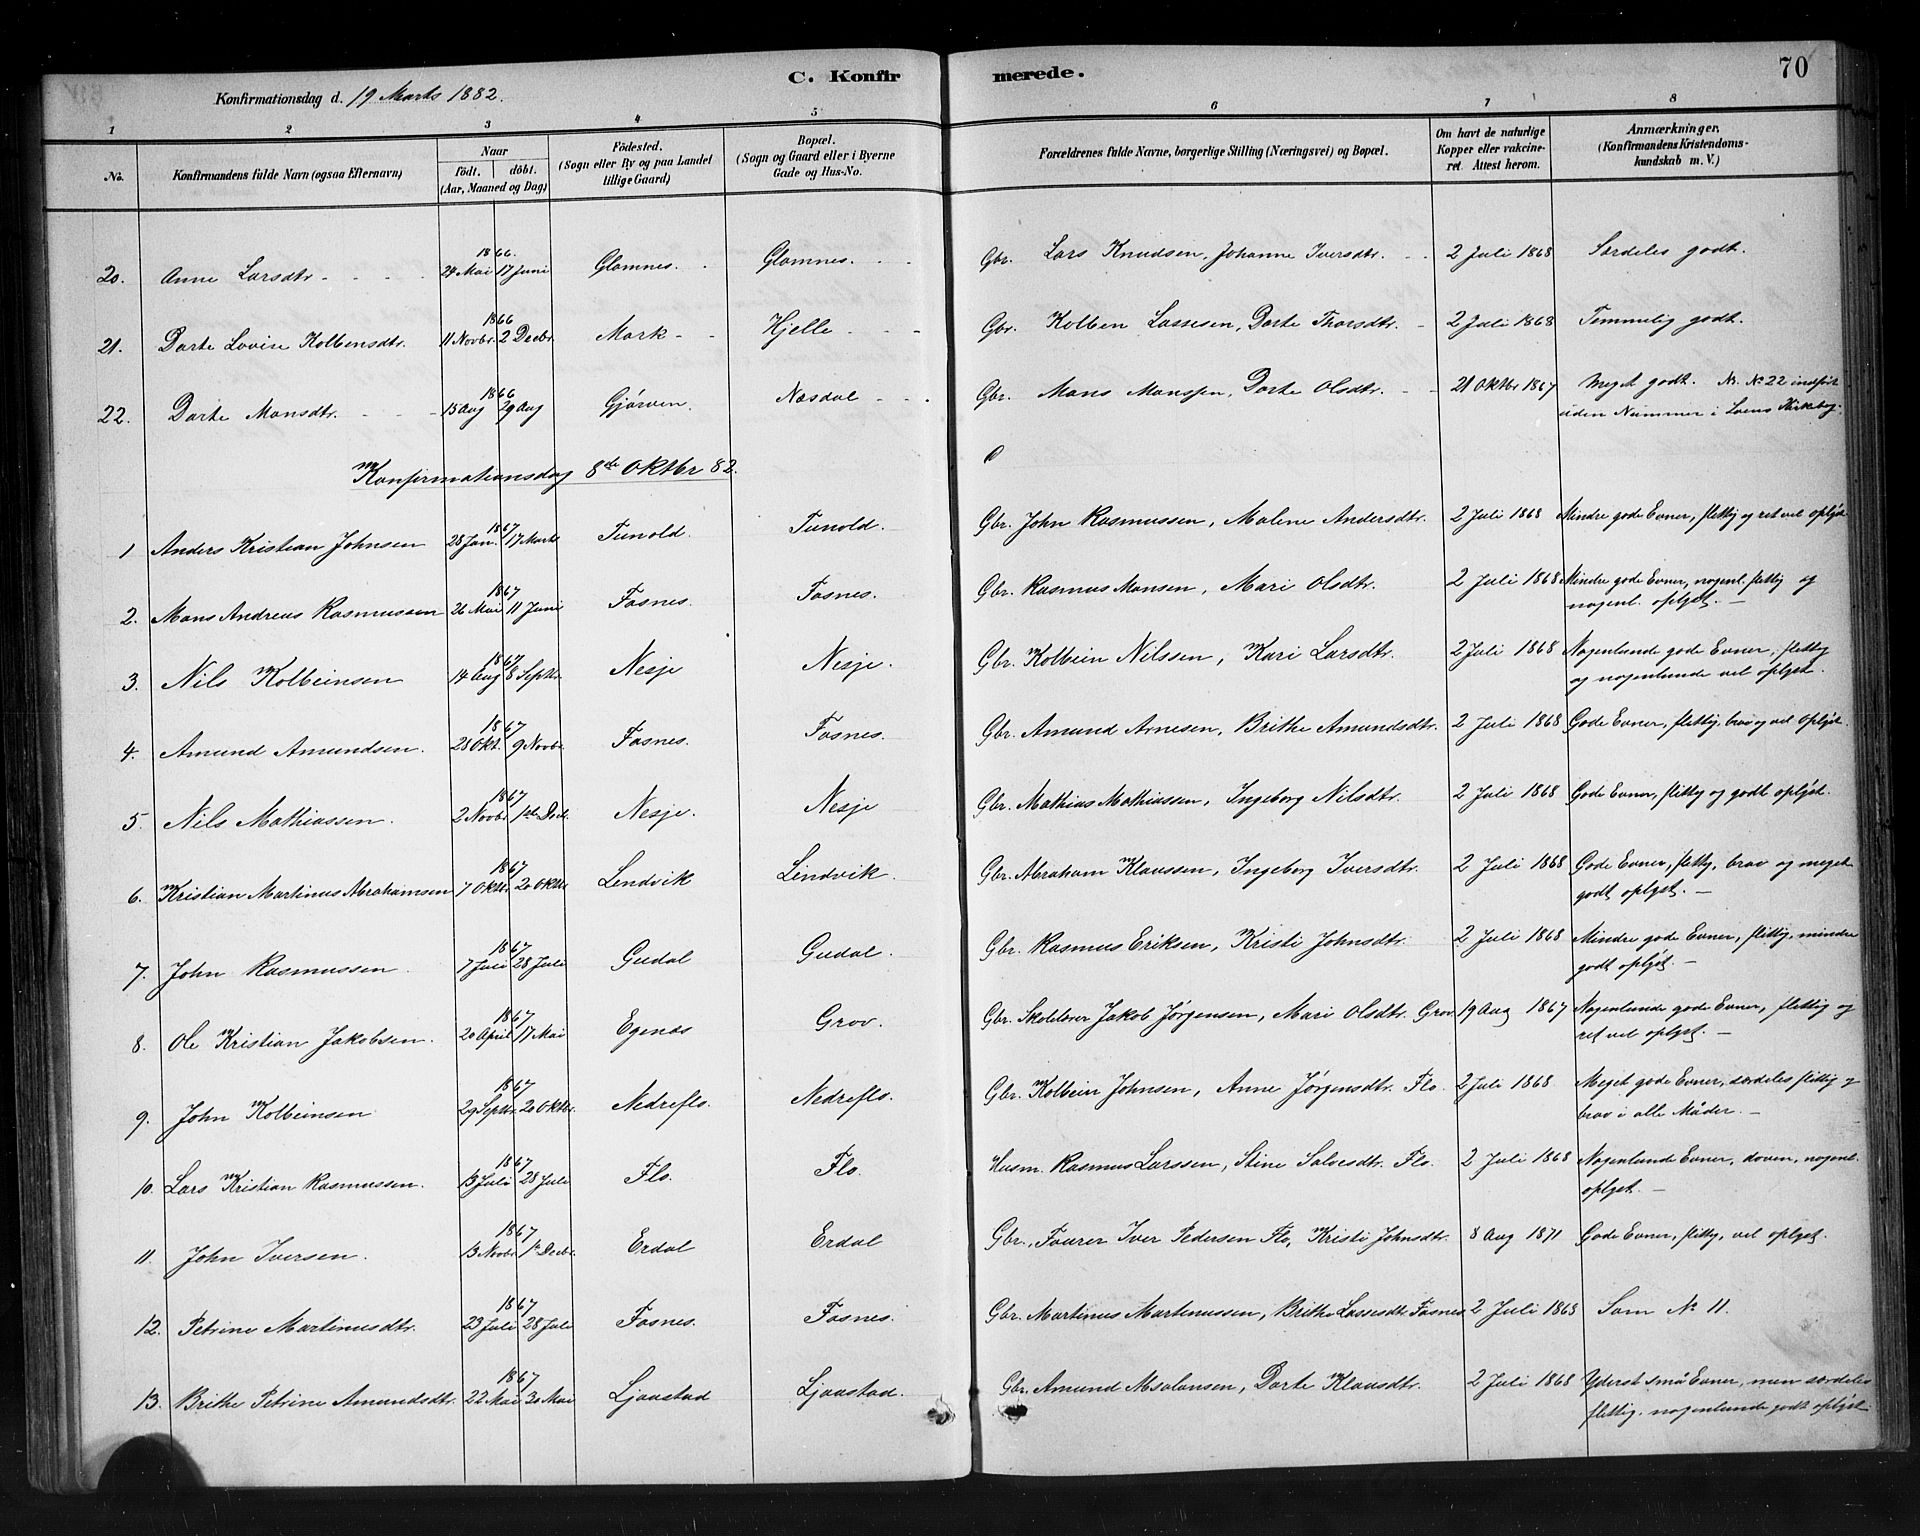 C. Konfirmerede. 70
Konfirmationsdag d. 19 Marts 1882.
1 2 3 4 5 6 7 8
No. Konfirmandens fulde Navn (ogsaa Efternavn) Naar födt. döbt. (Aar, Maaned og Dag) Födested. (Sogn eller By og paa Landet tillige Gaard) Bopæl. (Sogn og Gaard eller i Byerne Gade og Hus-No. Forældrenes fulde Navne, borgerlige Stilling (Næringsvei) og Bopæl. Om havt de naturlige Kopper eller vakcineret. Attest herom. Anmærkninger. (Konfirmandens Kristendomskundskab m. V.)
20. Anne Larsdtr 1866. 24 Mai 17 Juni Glomnes. Glomnes. Gbr. Lars Knudsen, Johanne Iversdtr. 2 Juli 1868 Særdeles godt.
21. Dorte Lovise Kolbensdtr. 1866 11 Novbr. 2 Decbr. Mork Hjelle Gbr. Kolben Lassesen, Dorte Thorsdtr. 2 Juli 1868 Temmelig godt.
22. Dorte Monsdtr. 1866 15 Aug 29 Aug Gjørven Næsdal Gbr. Mons Monssen, Dorte Olsdtr. 21 Oktbr 1867 Meget godt. N. No 22 indført
uden Nummer i Loens Kirkebog.
Konfirmationsdag 8de Oktbr 82.
1 Anders Kristian Johnsen 1867 28 Jan. 17 Marts Tunold. Tunold. Gbr. John Rasmussen, Malene Andersdtr. 2 Juli 1868 Mindre gode Evner, flittig og ret vel oplyst
2. Mons Andreas Rasmussen 1867 26 Mai 11 Juni Fosnes. Fosnes. Gbr. Rasmus Monsen, Mari Olsdtr. 2 Juli 1868 Mindre gode Evner, nogenl. flittig og
nogenl. oplyst.
3. Nils Kolbeinsen 1867 14 Aug 8 Septbr. Nesje Nesje. Gbr. Kolbein Nilssen, Kari Larsdtr. 2 Juli 1868 Nogenlunde gode Evner, flittig
og nogenlunde vel oplyst.
4. Amund Amundsen. 1867 28 Okt. 9 Novbr. Fosnes. Fosnes. Gbr. Amund Arnesen, Brithe Amundsdtr. 2 Juli 1868 Gode Evner, flittig, brav og vel oplyst.
5. Nils Mathiassen. 1867 2 Novbr 1ste Decb. Nesje. Nesje Gbr. Mathias Mathiassen, Ingeborg Nilsdtr. 2 Juli 1868 Gode Evner, flittig og godt oplyst.
6. Kristian Martinus Abrahamsen 1867 7 Oktbr 20 Oktbr Lendvik Lendvik. Gbr. Abraham Klaussen, Ingeborg Iversdtr. 2 Juli 1868 Gode Evner, flittig, brav og meget
godt oplyst.
7. John Rasmussen 1867 7 Juli 28 Juli Gudal Gudal. Gbr. Rasmus Eriksen, Kristi Johnsdtr. 2 Juli 1868 Mindre gode Evner, flittig, mindre
godt oplyst.
8. Ole Kristian Jakobsen. 1867 20 April 17 Mai Egenæs Grov. Gbr. Skolelærer Jakob Jørgensen, Mari Olsdtr. Grov. 19 Aug 1867 Nogenlunde gode Evner, flittig og
ret vel oplyst.
9. John Kolbeinsen 1867 29 Septbr. 20 Oktbr. Nedreflo. Nedreflo. Gbr. Kolbein Johnsen, Anne Jørgensdtr. Flo. 2 Juli 1868 Meget gode Evner, særdeles flittig og
brav i alle Måder.
10. Lars Kristian Rasmussen. 1867 13 Juli 28 Juli Flo. Flo. Husm. Rasmus Larssen, Stine Salvesdtr. Flo. 2 Juli 1868 Nogenlunde Evner, doven, nogenl.
oplyst.
11. John Iversen. 1867 13 Novbr. 1ste Decbr. Erdal Erdal Gbr., Fourer Iver Pedersen Flo, Kristi Johnsdtr. 8 Aug 1871 Gode Evner, flittig, vel oplyst.
12. Petrine Martinusdtr. 1867 23 Juli 28 Juli Fosnes. Fosnes. Gbr. Martinus Martinussen, Brithe Lassesdtr. Fosnes 2 Juli 1868 Som No 11.
13. Brithe Petrine Amundsdtr. 1867 22 Mai 30 Mai Ljosstad Ljosstad. Gbr. Amund Absalonsen, Dorte Klausdtr. 2 Juli 1868 Yderst små Evner, men særdeles
flittig, nogenlunde godt oplyst.